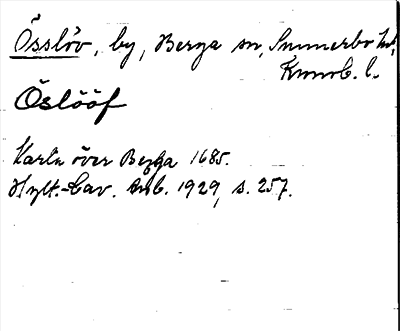 Össlöv, by, Berga sn, Sunnerbo hd,
Kronob. l.
Öslööf
Karta över Berga 1685.
Hylt.-Cav. Årsb. 1929, s. 257.